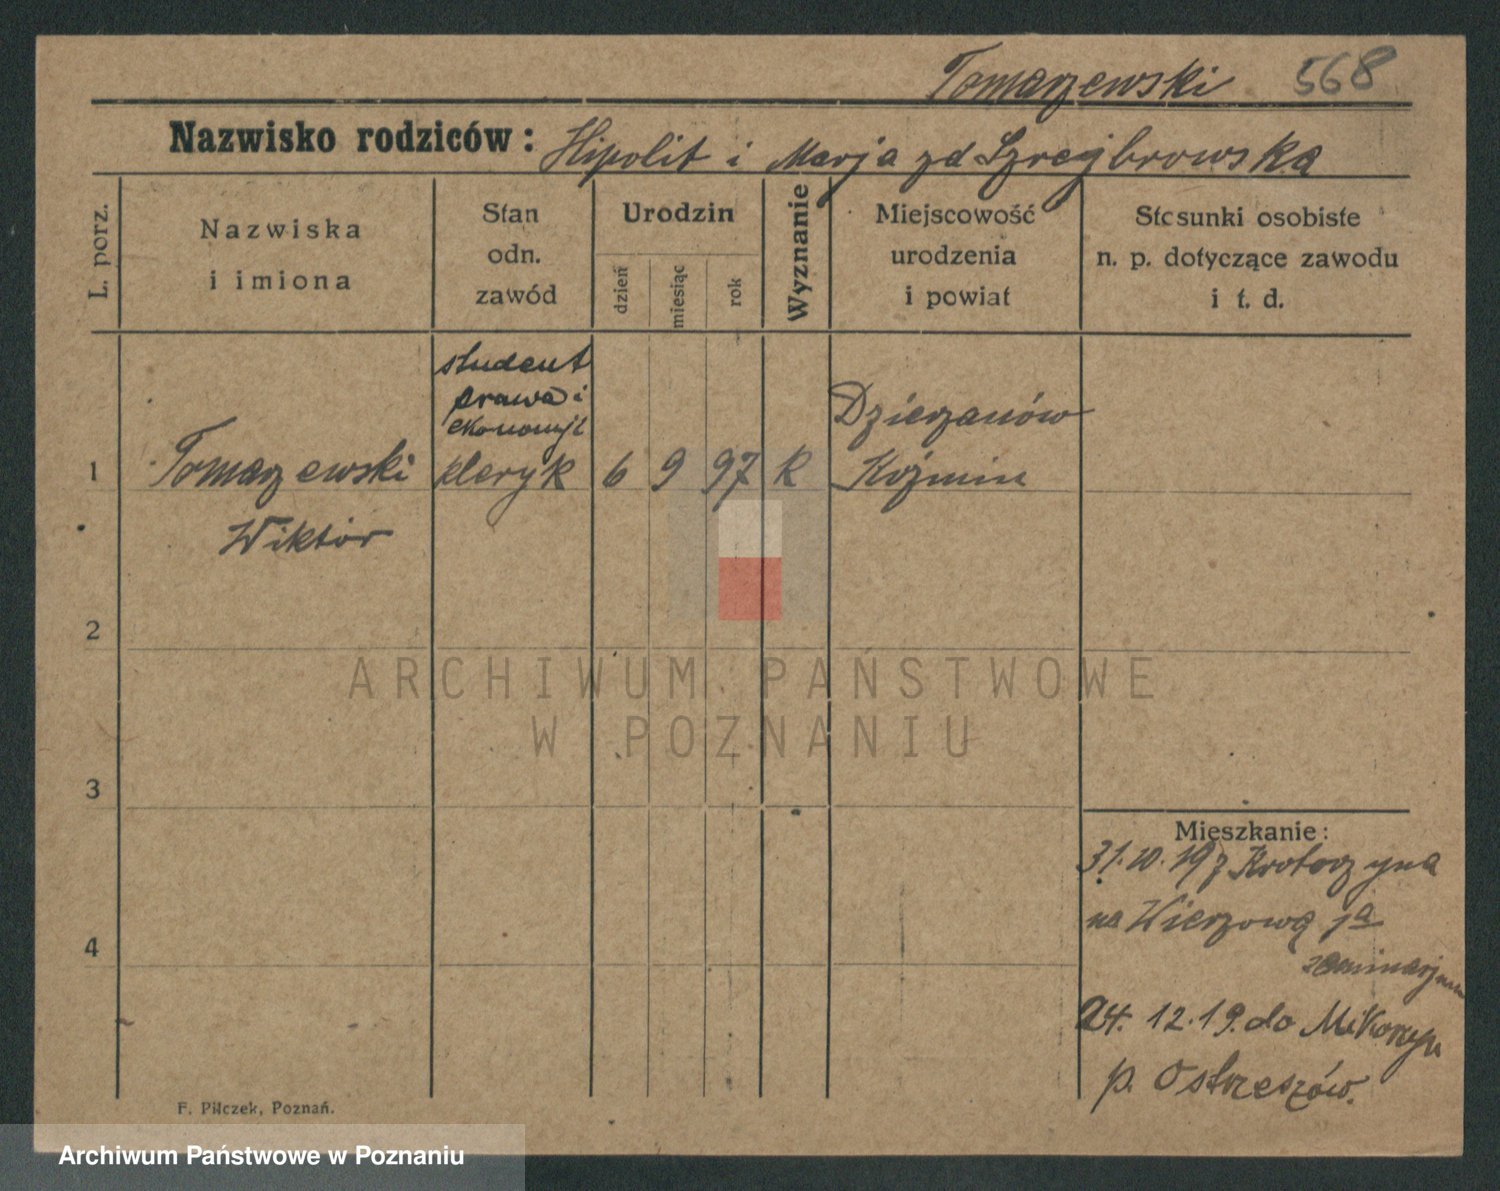 Tomarzewski 568
Nazwisko rodziców: Hipolit i Marja zd
L. porz.
Nazwiska
i imiona
Stan
odn.
zawód
Urodzin
dzień
miesiąc
rok
Wyznanie
Miejscowość
urodzenia
i powiat
Stosunki osobiste
n. p. dotyczące zawodu
i t. d.
student
prawa i
ekonomji
1 Tomarzewski kleryk 6 9 97 k Dzierzanów
Koźmin
Wiktór
2
3
4
Mieszkanie:
31.10.19 z Krotoszyna
na Wieżową 1a
24. 12.19. do
p. Ostrzeszów.
F. Pilczek, Poznań.
ARCHIWUM PAŃSTWOWE
W POZNANIU
Archiwum Państwowe w Poznaniu